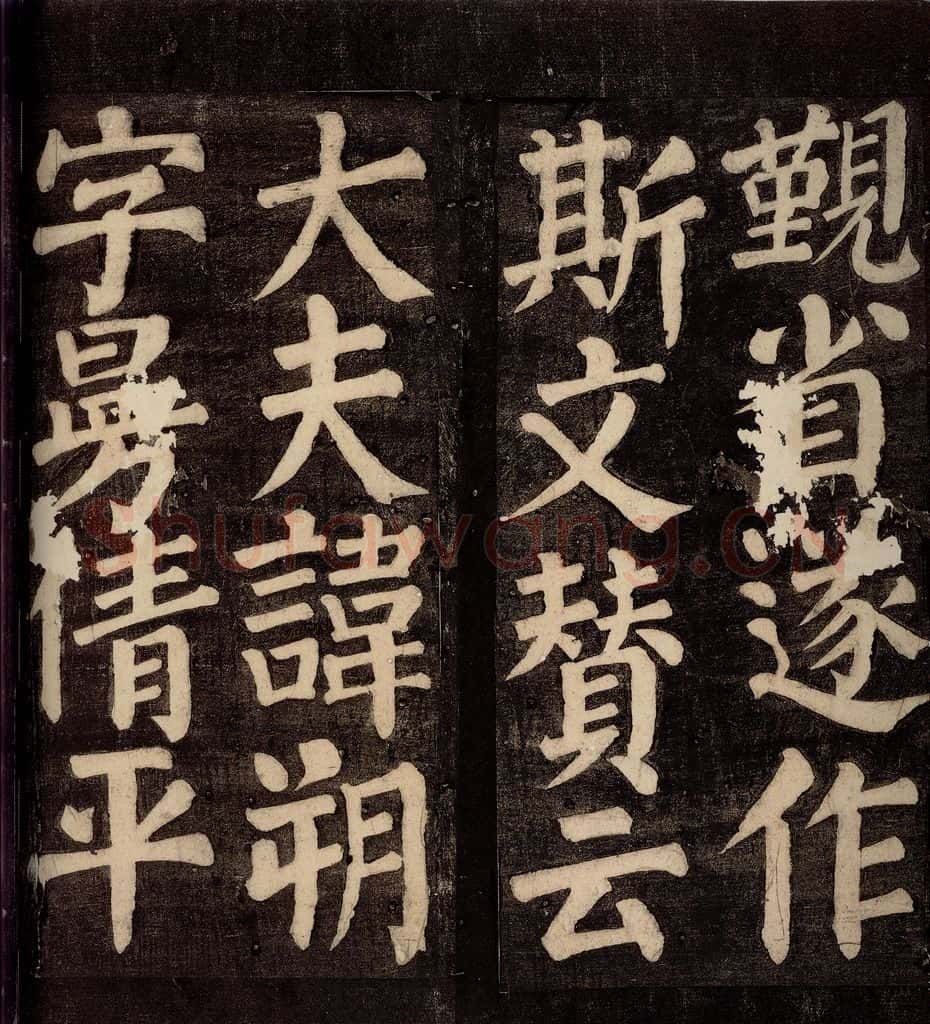 覲省遂作
斯文贊云
大夫諱朔
字曼倩平
shufawang.cn